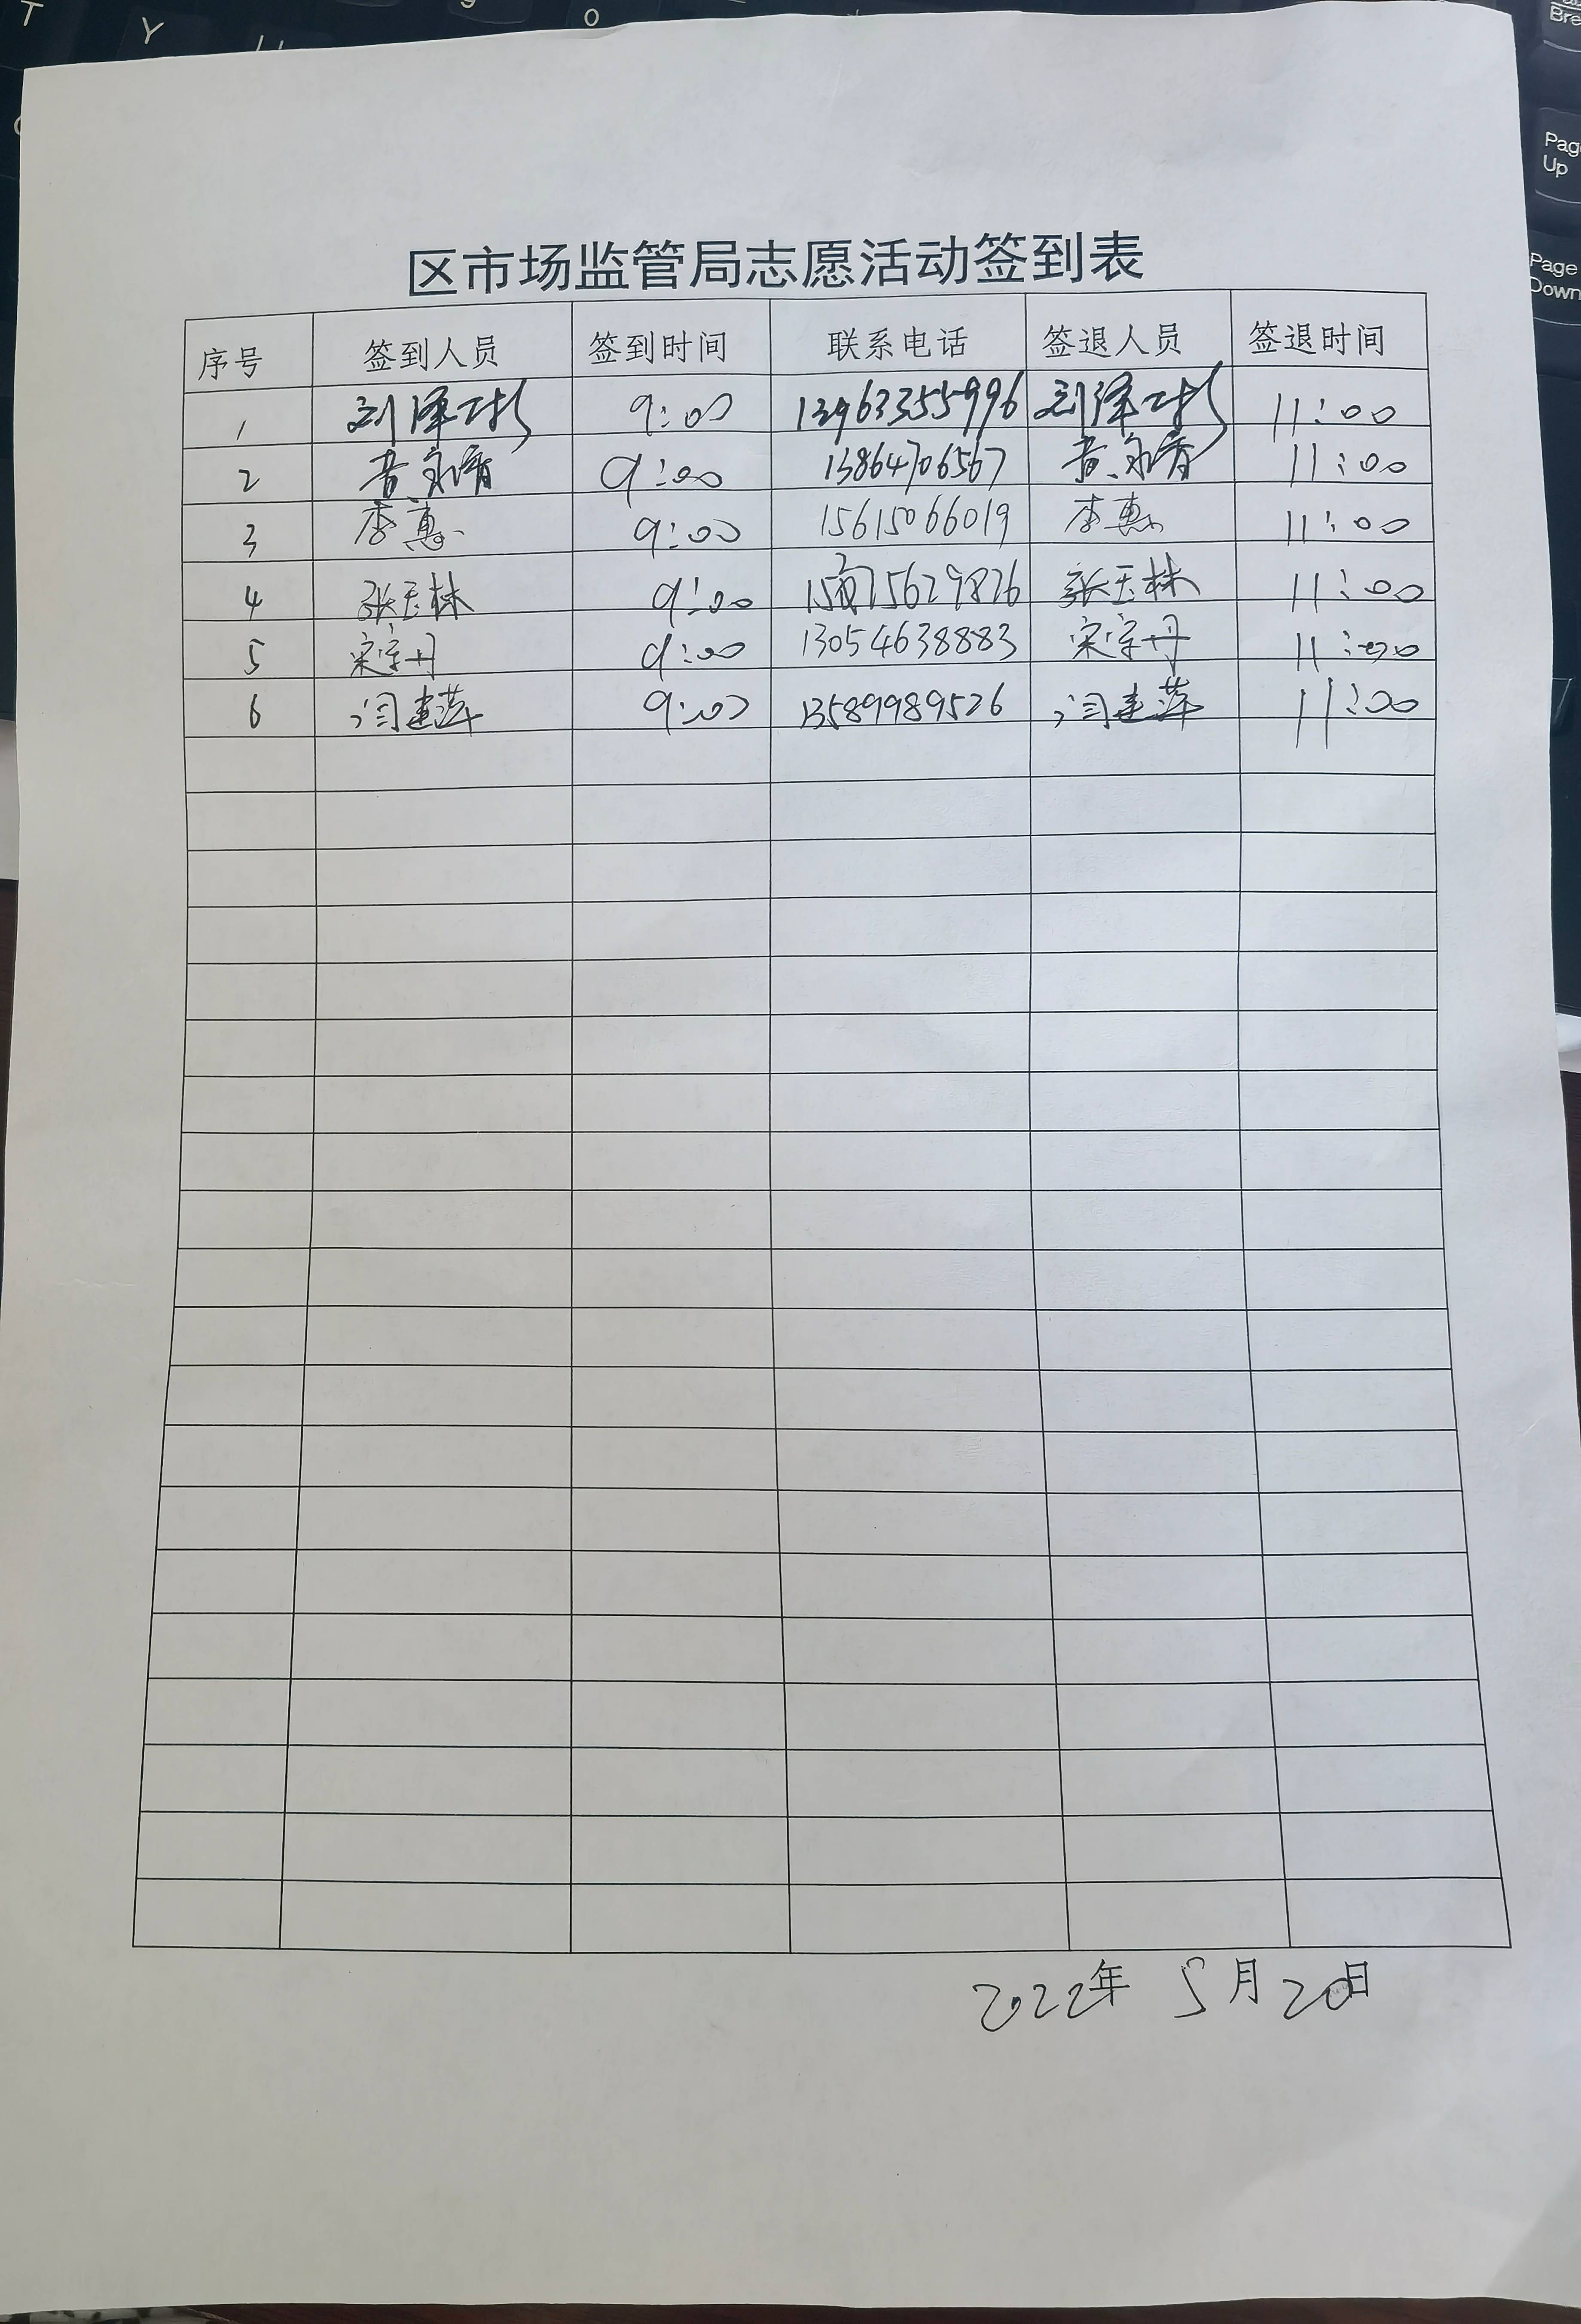 区市场监管局志愿活动签到表
序号 签到人员 签到时间 联系电话 签退人员 签退时间
1 刘泽 9:00 13963355996 刘泽 11:00
2 9:00 13864706567 11:00
3 李惠 9:00 15615066019 李惠 11:00
4 张玉林 9:00 张玉林 11:00
5 宋宇丹 9:00 13054638883 宋宇丹 11:00
6 闫建萍 9:00 13589989526 闫建萍 11:00
2022年 5月20日
T Y O
Page Up
Page Down